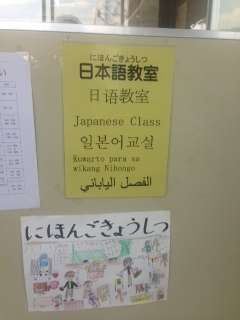 にほんごきょうしつ
日本語教室
日语教室
Japanese Class
일본어교실
Kuwarto para sa
wikang Nihongo
الفصل الياباني
にほんごきょうしつ